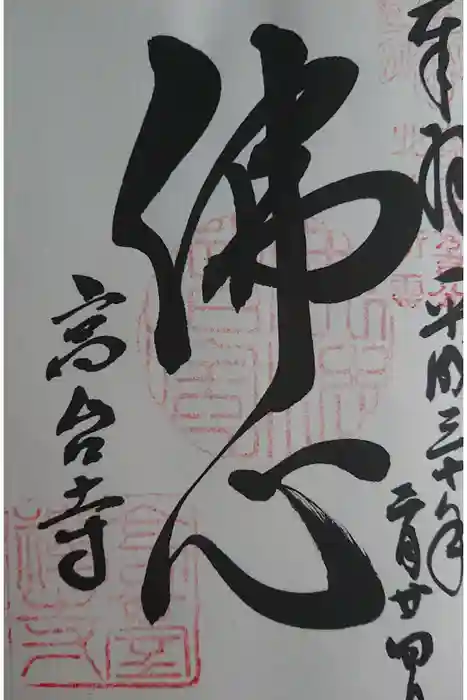 奉拝
平成三十年
二月廿四日
佛心
高台寺